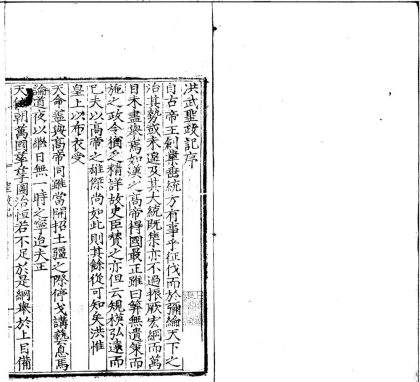 洪武聖政記序
自古帝王創業垂統方有事乎征伐而於彌綸天下之
治其勢或未遑及其大統既集亦不過振厥宏綱而萬
目未盡舉焉如漢之高帝得國最正雖曰算無遺策而
施之政令猶乏精詳故史臣贊之亦但云規模弘遠而
已夫以高帝之雄傑尚如此則其餘從可知矣洪惟
皇上以布衣受
天命蓋與高帝同雖當開拓土疆之際停戈講藝息馬
論道夜以繼日無一時之寧迨夫正
天朝萬國華夷圖治恒若不足於是綱舉於上目備